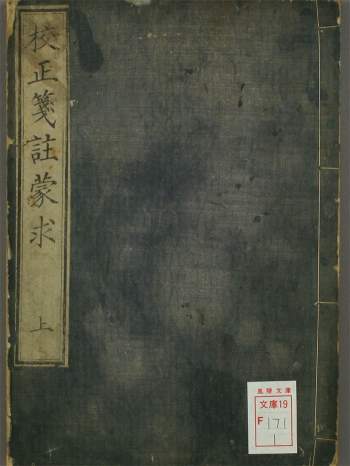 校正箋註蒙求 上
風陵文庫
文庫19
F 171
1